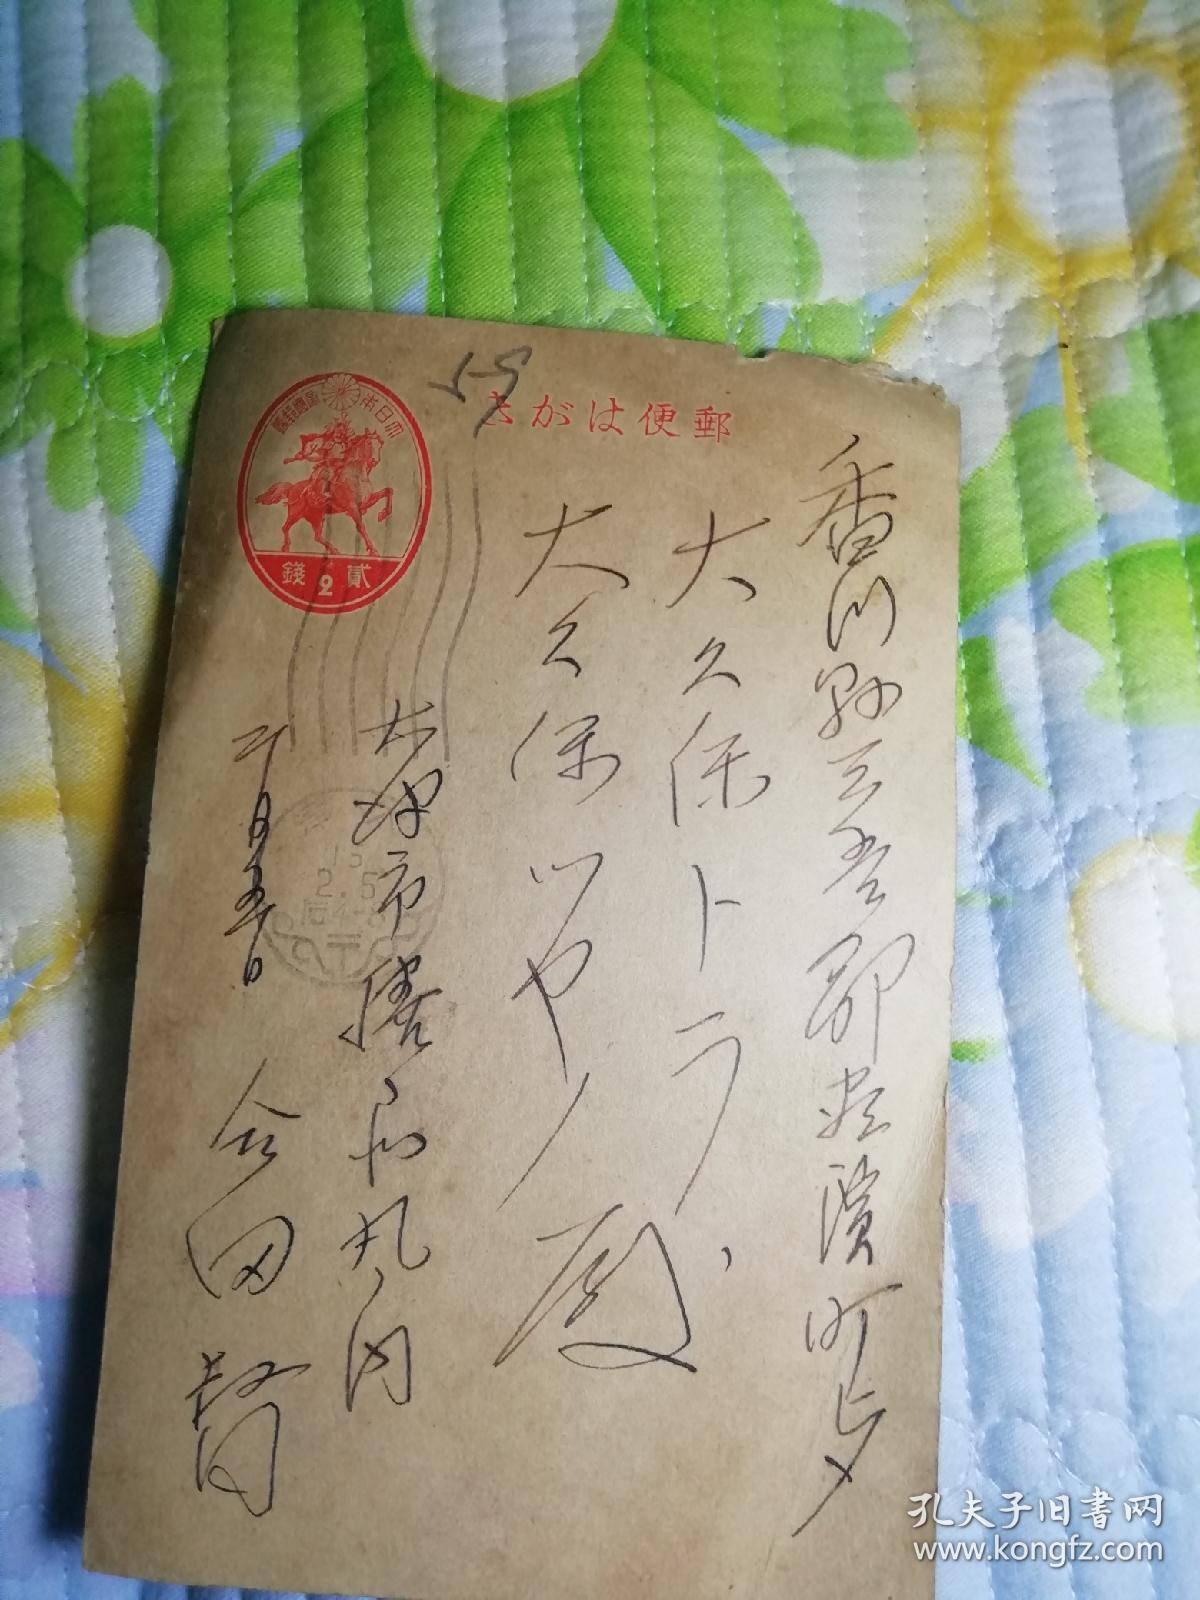 郵便はがき
大日本帝國郵便
貳2錢
香川縣三豊郡豊濱町
大久保トラ、
大久保ツヤノ殿
大津市膳所丸ノ内
二月五日 田
2.5
孔夫子旧书网
www.kongfz.com